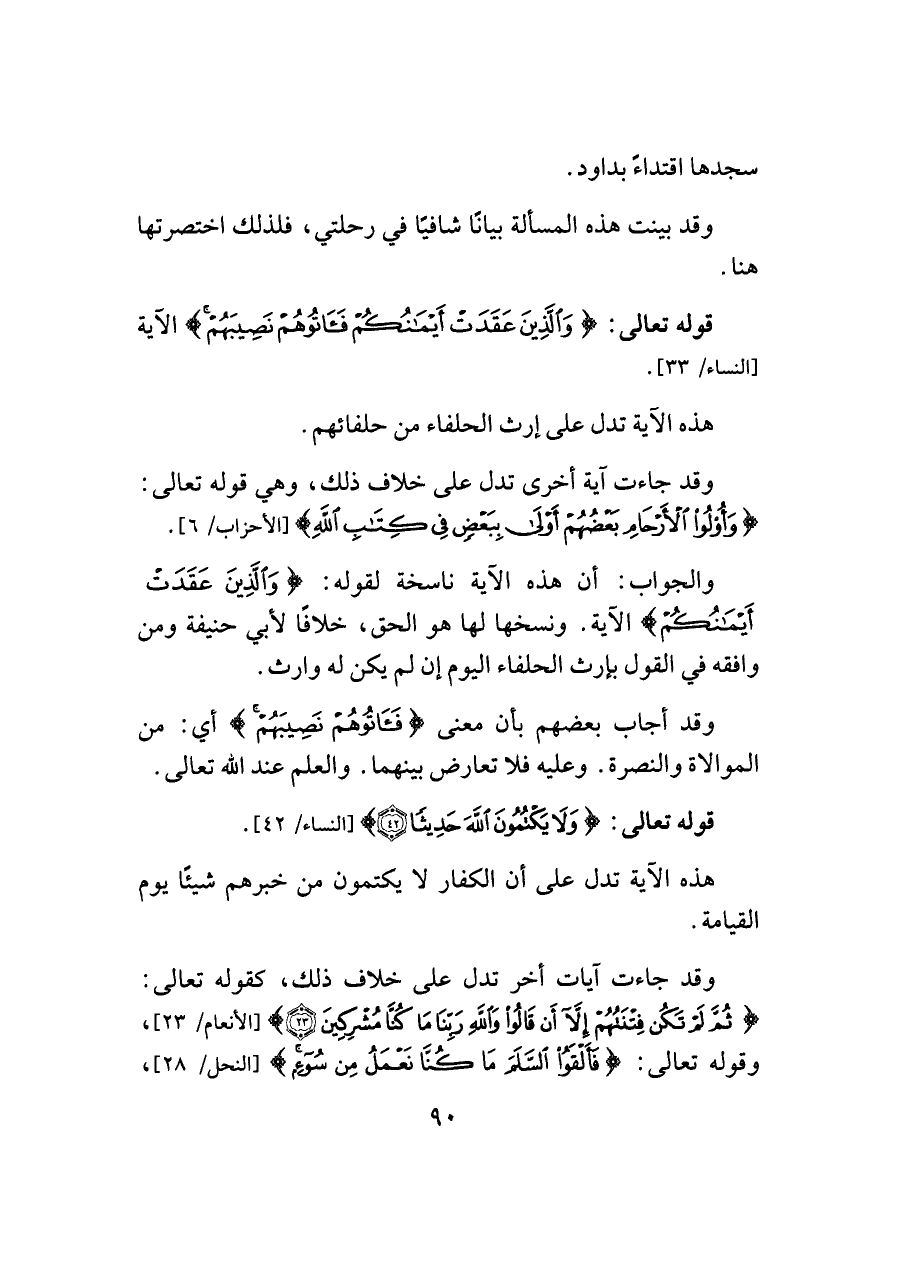 سجدها اقتداءً بداود.
وقد بينت هذه المسألة بيانًا شافيًا في رحلتي، فلذلك اختصرتها
هنا.
قوله تعالى: ﴿ وَٱلَّذِينَ عَقَدَتۡ أَيۡمَٰنُكُمۡ فَـَٔاتُوهُمۡ نَصِيبَهُمۡۚ ﴾ الآية
[النساء/ ٣٣].
هذه الآية تدل على إرث الحلفاء من حلفائهم.
وقد جاءت آية أخرى تدل على خلاف ذلك، وهي قوله تعالى:
﴿ وَأُوْلُواْ ٱلۡأَرۡحَامِ بَعۡضُهُمۡ أَوۡلَىٰ بِبَعۡضٖ فِي كِتَٰبِ ٱللَّهِ ﴾ [الأحزاب/ ٦].
والجواب: أن هذه الآية ناسخة لقوله: ﴿ وَٱلَّذِينَ عَقَدَتۡ
أَيۡمَٰنُكُمۡ ﴾ الآية. ونسخها لها هو الحق، خلافًا لأبي حنيفة ومن
وافقه في القول بإرث الحلفاء اليوم إن لم يكن له وارث.
وقد أجاب بعضهم بأن معنى ﴿ فَـَٔاتُوهُمۡ نَصِيبَهُمۡۚ ﴾ أي: من
الموالاة والنصرة. وعليه فلا تعارض بينهما. والعلم عند الله تعالى.
قوله تعالى: ﴿ وَلَا يَكۡتُمُونَ ٱللَّهَ حَدِيثٗا ٤٢ ﴾ [النساء/ ٤٢].
هذه الآية تدل على أن الكفار لا يكتمون من خبرهم شيئًا يوم
القيامة.
وقد جاءت آيات أخر تدل على خلاف ذلك، كقوله تعالى:
﴿ ثُمَّ لَمۡ تَكُن فِتۡنَتُهُمۡ إِلَّآ أَن قَالُواْ وَٱللَّهِ رَبِّنَا مَا كُنَّا مُشۡرِكِينَ ٢٣ ﴾ [الأنعام/ ٢٣]،
وقوله تعالى: ﴿ فَأَلۡقَوُاْ ٱلسَّلَمَ مَا كُنَّا نَعۡمَلُ مِن سُوٓءِۭۚ ﴾ [النحل/ ٢٨]،
٩٠